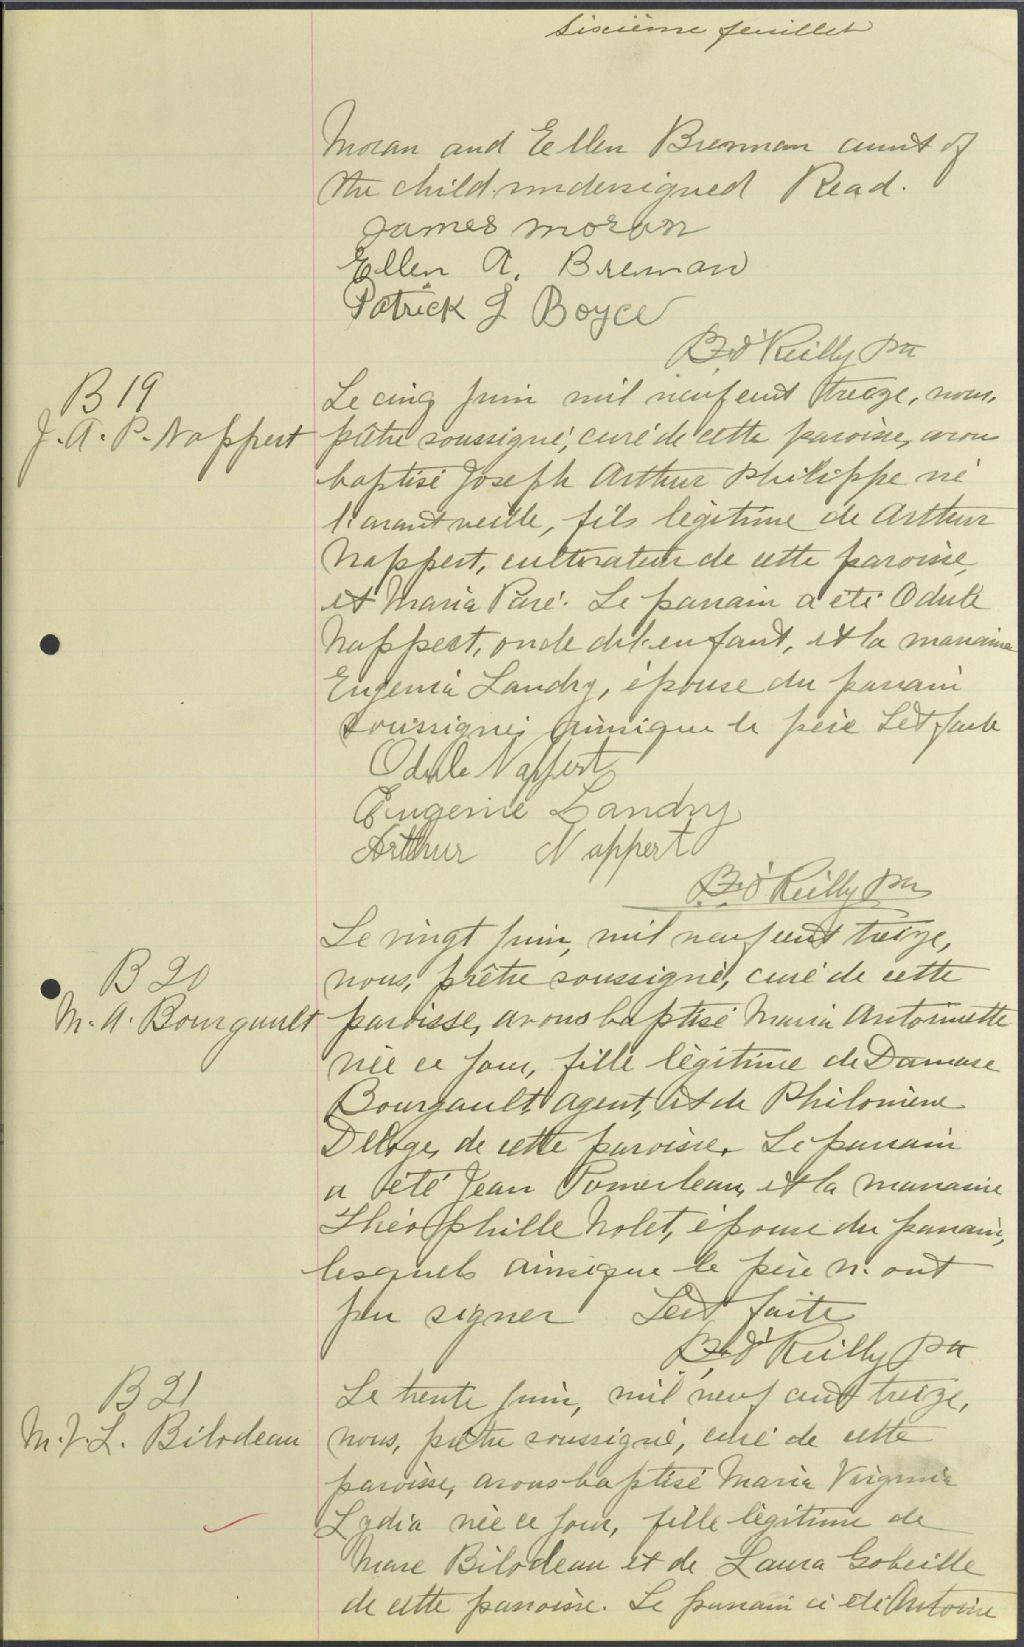 Sixième feuillet
Moran and Ellen Brennan aunt of
the child undersigned Read.
James Moran
Ellen A. Brennan
Patrick J Boyce
B. O'Reilly Ptre
B 19
J. A. P. Nappert
Le cinq juin mil neuf cent treize, nous,
prêtre soussigné, curé de cette paroisse, avons
baptisé Joseph Arthur Philippe né
l'avant veille, fils légitime de Arthur
Nappert, cultivateur de cette paroisse,
et Maria Paré. Le parrain a été Odule
Nappert, oncle de l'enfant, et la marraine
Eugenia Landry, épouse du parrain
soussignés ainsique le père Lect faite
Odule Nappert
Eugenie Landry
Arthur Nappert
B. O'Reilly Ptre
B 20
M. A. Bourgault
Le vingt juin, mil neuf cent treize,
nous, prêtre soussigné, curé de cette
paroisse, avons baptisé Maria Antoinette
née ce jour, fille légitime de Damase
Bourgault, agent, et de Philomène
de cette paroisse. Le parrain
a été Jean Pomerleau, et la marraine
Théophille Nolet, épouse du parrain,
lesquels ainsique le père n'ont
pu signer Lect faite
B. O'Reilly Ptre
B 21
M. V. L. Bilodeau
Le trente juin, mil neuf cent treize,
nous, prêtre soussigné, curé de cette
paroisse, avons baptisé Maria Virginia
Lydia née ce jour, fille légitime de
Marc Bilodeau et de Laura Gobeille
de cette paroisse. Le parrain a été Antoine